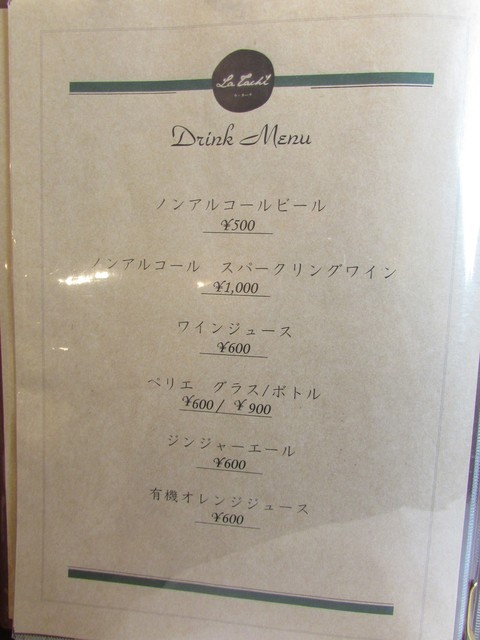 La Tachi
Drink Menu
ノンアルコールビール
¥500
ノンアルコール スパークリングワイン
¥1,000
ワインジュース
¥600
ペリエ グラス/ボトル
¥600 / ¥ 900
ジンジャーエール
¥600
有機オレンジジュース
¥600